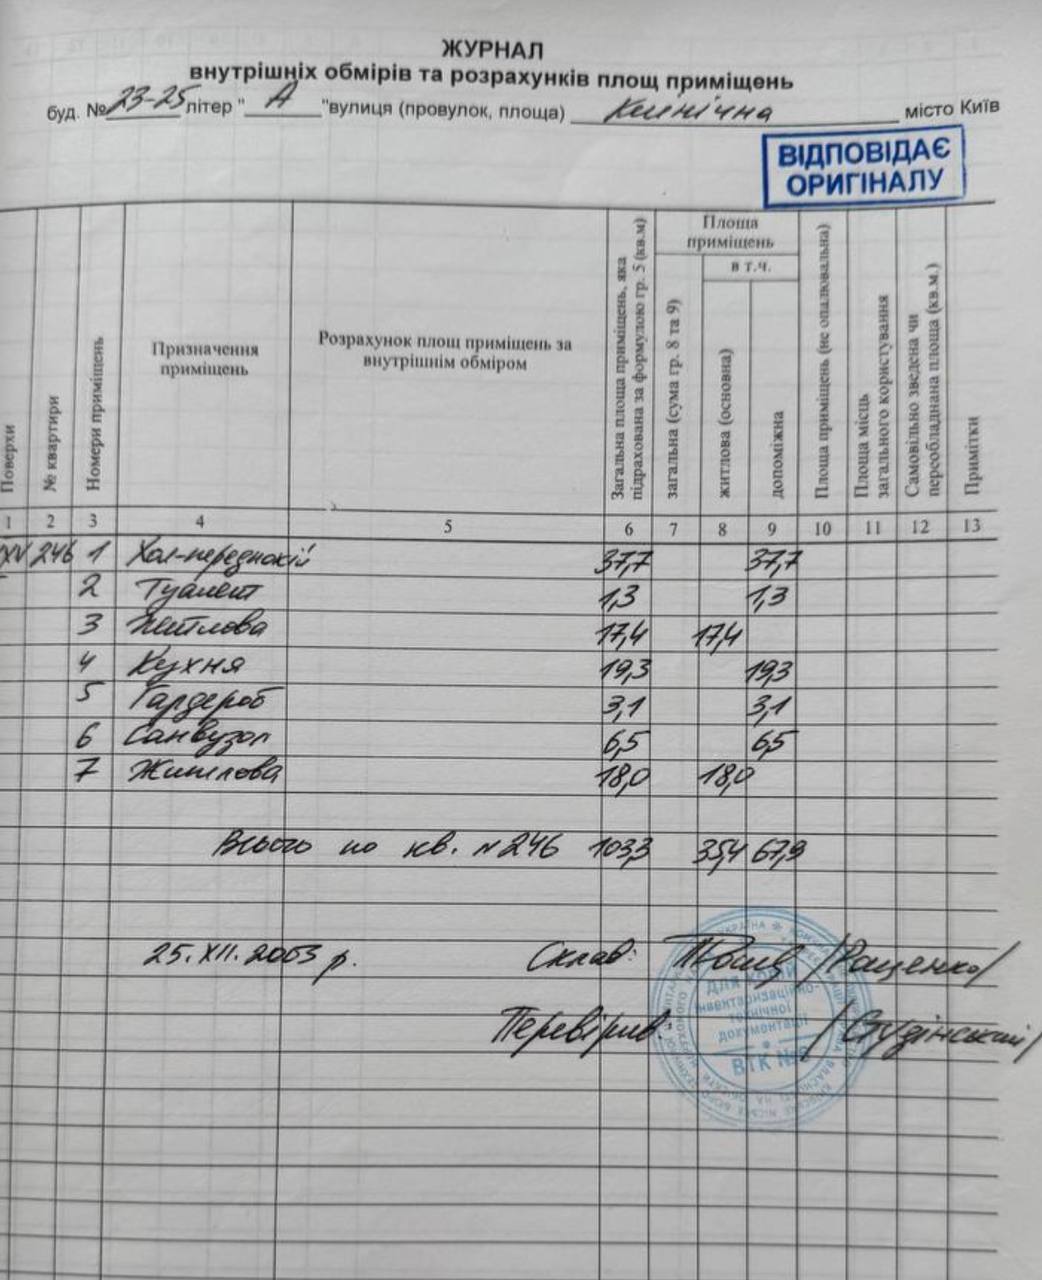 ЖУРНАЛ
внутрішніх обмірів та розрахунків площ приміщень
буд. № 23-25 літер " А " вулиця (провулок, площа) Клінічна місто Київ
ВІДПОВІДАЄ
ОРИГІНАЛУ
Поверхи
№ квартири
Номери приміщень
Призначення
приміщень
Розрахунок площ приміщень за
внутрішнім обміром
Загальна площа приміщень, яка
підрахована за формулою гр. 5 (кв.м)
Площа
приміщень
загальна (сума гр. 8 та 9)
в т.ч.
житлова (основна)
допоміжна
Площа приміщень (не опалювальна)
Площа місць
загального користування
Самовільно зведена чи
переобладнана площа (кв.м.)
Примітки
1 2 3 4 5 6 7 8 9 10 11 12 13
XV 246 1 Хол-передпокій 37,7 37,7
2 Туалет 1,3 1,3
3 Житлова 17,4 17,4
4 Кухня 19,3 19,3
5 Гардероб 3,1 3,1
6 Санвузол 6,5 6,5
7 Житлова 18,0 18,0
Всього по кв. №246 103,3 35,4 67,9
25.XII.2003 р. Склав: /Раценко/
Перевірив: /Студінський/
Для копій
інвентаризаційно-
технічної
документації
ВТК